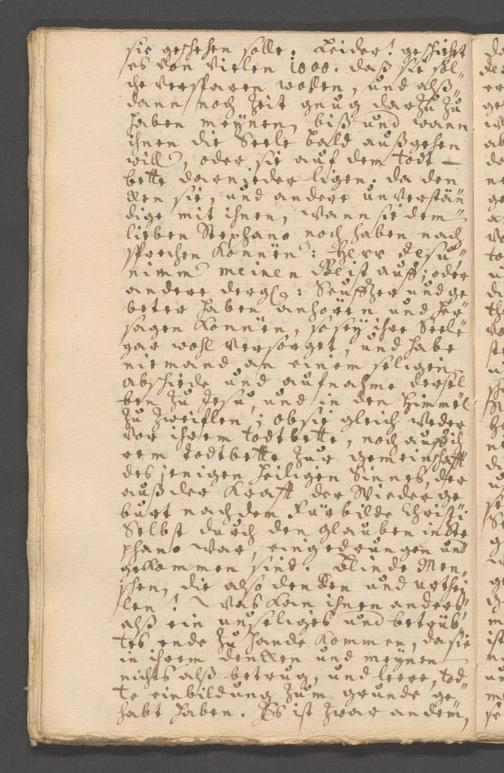 sie geschehen solle. Leider! geschieht
es von vielen 1000. daß sie sol-
che versparen wollen, und alß-
dann noch Zeit gnug darzu zu
haben meynen, biß und wann
ihnen die Seele bald außgehen
will, oder sie auf dem Todt-
bette darnieder ligen. da den
cken sie, und andere unverstän
dige mit ihnen, wann sie dem
lieben Stephano noch haben nach
sprechen können: Herr Jesu
nimm meinen Geist auff; oder
andere dergl: Seuffzer und ge
beter haben anhören und her
sagen können, so sey ihre Seele
gar wohl versorget, und habe
niemand an einem seligen
abschiede und aufnahme dersel
ben zu Jesu, und in den Himmel
zu zweiflen; ob sie gleich weder
vor ihrem todtbette, noch auf ih
rem todtbette zur gemeinschafft
desjenigen heiligen Sinnes, der
auß der Krafft der Wiederge
burt nach dem Fürbilde Christi
Selbst durch den glauben in Ste
phano war, eingedrungen und
gekommen sind. Blinde Men
schen, die also dencken und urthei
len! was kan ihnen anders
alß ein unseliges und betrüb
tes ende zu hande kommen, da sie
in ihrem dencken und meynen
nichts alß betrug, und leere, tod
te einbildung zum grunde ge
habt haben. Es ist zwar an dem,